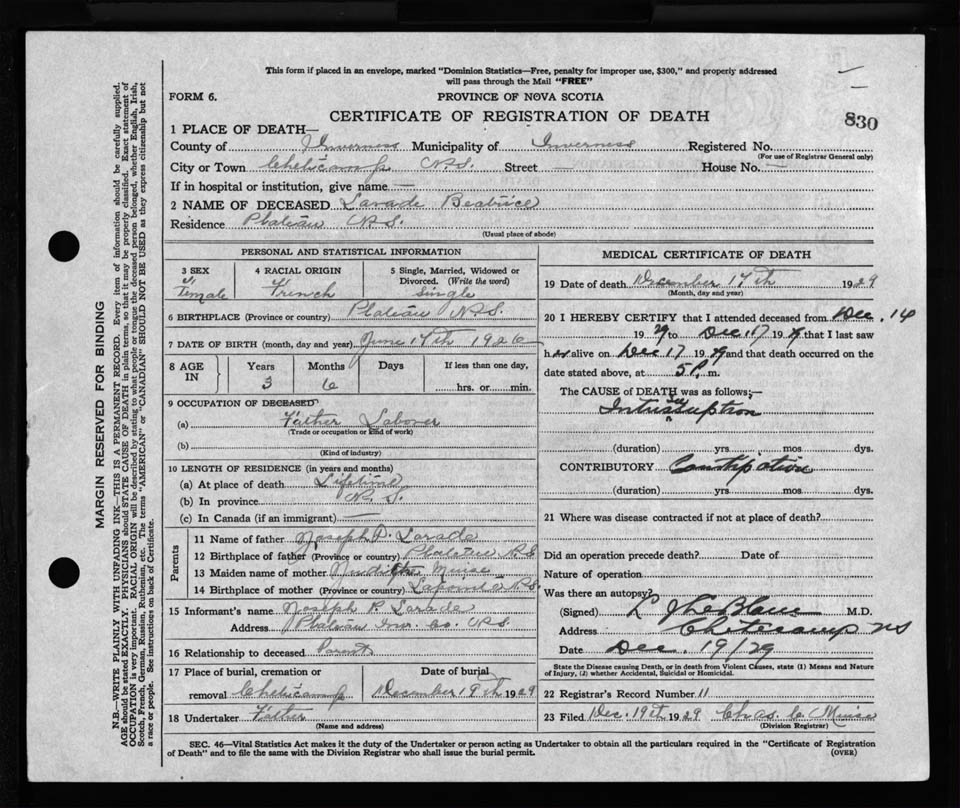 This form if placed in an envelope, marked "Dominion Statistics—Free, penalty for improper use, $300," and properly addressed
will pass through the Mail "FREE"
FORM 6.
PROVINCE OF NOVA SCOTIA
CERTIFICATE OF REGISTRATION OF DEATH
830
1 PLACE OF DEATH—
County of Inverness Municipality of Inverness Registered No.
(For use of Registrar General only)
City or Town Cheticamp N.S. Street — House No. —
If in hospital or institution, give name —
2 NAME OF DECEASED Larade Beatrice
Residence Plateau N.S.
(Usual place of abode)
PERSONAL AND STATISTICAL INFORMATION
3 SEX
Female
4 RACIAL ORIGIN
French
5 Single, Married, Widowed or
Divorced. (Write the word)
Single
6 BIRTHPLACE (Province or country) Plateau N.S.
7 DATE OF BIRTH (month, day and year) June 17th 1926
8 AGE
IN
Years
3
Months
6
Days
If less than one day,
hrs. or min.
9 OCCUPATION OF DECEASED
(a) Father Laborer
(Trade or occupation or kind of work)
(b)
(Kind of industry)
10 LENGTH OF RESIDENCE (in years and months)
(a) At place of death Lifetime
(b) In province N.S.
(c) In Canada (if an immigrant) —
Parents
11 Name of father Joseph P. Larade
12 Birthplace of father (Province or country) N.S.
13 Maiden name of mother Judith Muise
14 Birthplace of mother (Province or country) Lapointe N.S.
15 Informant's name Joseph P. Larade
Address Plateau Inv. Co. N.S.
16 Relationship to deceased Parent
17 Place of burial, cremation or
removal Cheticamp
Date of burial
December 19th 1929
18 Undertaker Father
(Name and address)
MEDICAL CERTIFICATE OF DEATH
19 Date of death December 17th 1929
(Month, day and year)
20 I HEREBY CERTIFY that I attended deceased from Dec. 14
1929 to Dec 17 1929 that I last saw
her alive on Dec 17 1929 and that death occurred on the
date stated above, at 5 P. m.
The CAUSE of DEATH was as follows:—
(duration) yrs. mos. dys.
CONTRIBUTORY Constipation
(duration) yrs mos dys.
21 Where was disease contracted if not at place of death?
Did an operation precede death? Date of
Nature of operation
Was there an autopsy?
(Signed) L J LeBlanc M.D.
Address Cheticamp NS
Date Dec. 19/29
State the Disease causing Death, or in death from Violent Causes, state (1) Means and Nature
of Injury, (2) whether Accidental, Suicidal or Homicidal.
22 Registrar's Record Number 11
23 Filed Dec. 19th 1929 Chas. C. Muise
(Division Registrar)
SEC. 46—Vital Statistics Act makes it the duty of the Undertaker or person acting as Undertaker to obtain all the particulars required in the "Certificate of Registration
of Death" and to file the same with the Division Registrar who shall issue the burial permit.
(OVER)
MARGIN RESERVED FOR BINDING
N.B.—WRITE PLAINLY WITH UNFADING INK—THIS IS A PERMANENT RECORD. Every item of information should be carefully supplied.
AGE should be stated EXACTLY. PHYSICIANS should STATE CAUSE OF DEATH in plain terms, so that it may be properly classified. Exact statement of
OCCUPATION is very important. RACIAL ORIGIN will be described by stating to what people or tongue the deceased person belonged, whether English, Irish,
Scotch, French, German, Russian, Ruthenian, etc. The terms "AMERICAN" or "CANADIAN" SHOULD NOT BE USED as they express citizenship but not
a race or people. See instructions on back of Certificate.